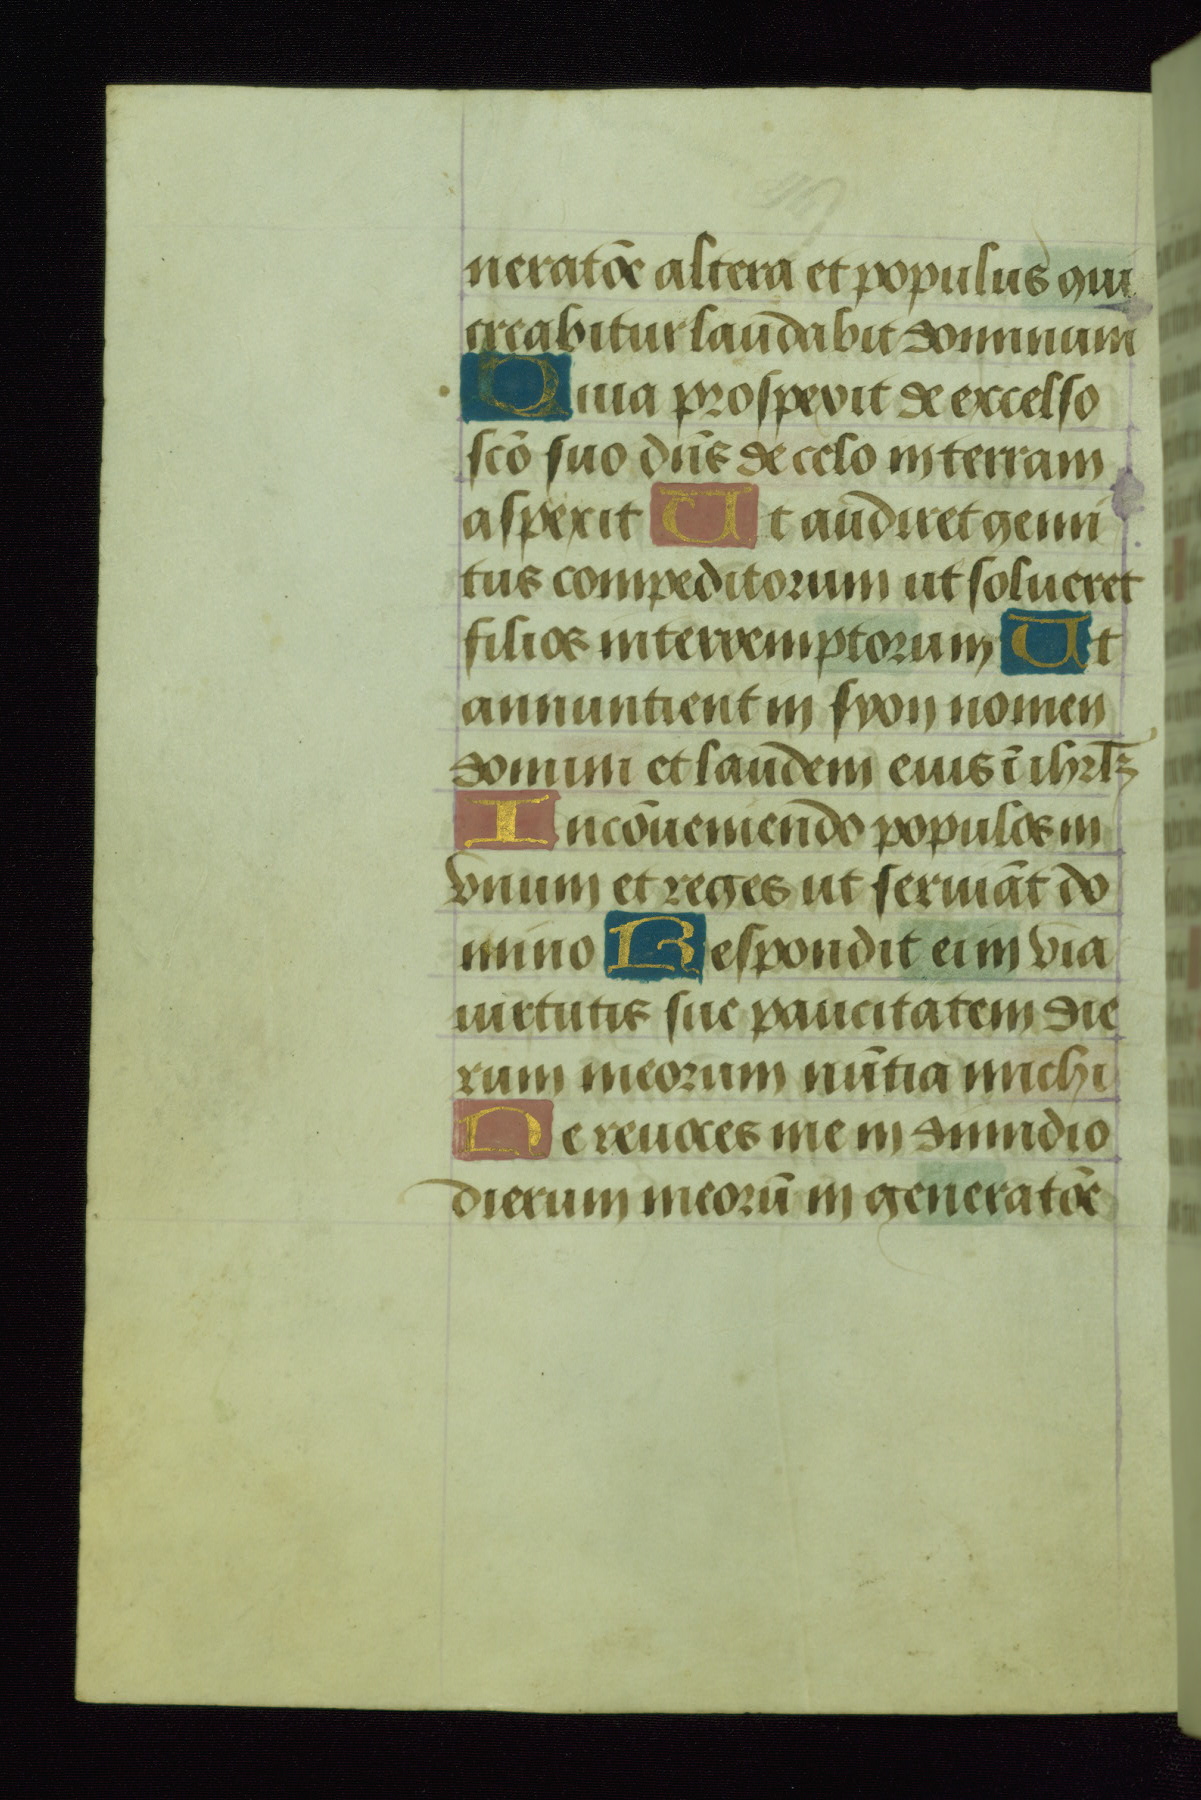 neratõe altera et populus qui
creabitur laudabit dominum
Quia prospexit de excelso
scõ suo dñs de celo in terram
aspexit Ut audiret gemi
tus compeditorum ut solueret
filios interremptorum Ut
annuntient in syon nomen
domini et laudem eius ĩ ihrlz
In cõueniendo populos in
vnum et reges ut seruiãt do
mino Respondit ei in via
uirtutis sue paucitatem die
rum meorum nũtia michi
Ne reuoces me in dimidio
dierum meorũ in generatõe